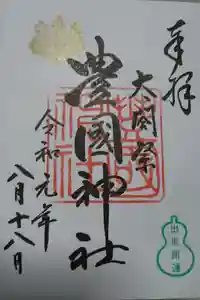 奉拝
大閤祭
豊國神社
令和元年
八月十八日
出世開運